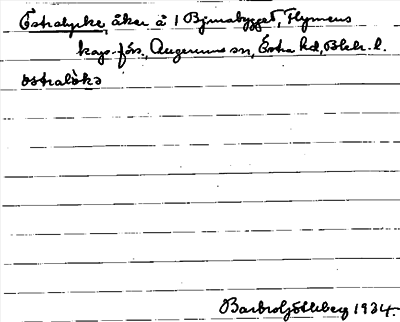 Östralycke, åker å 1 Björnabygget, Flymens
kap.förs., Augerums sn, Östra hd, Blek. l.
östralökə
Barbro Göttberg 1934.